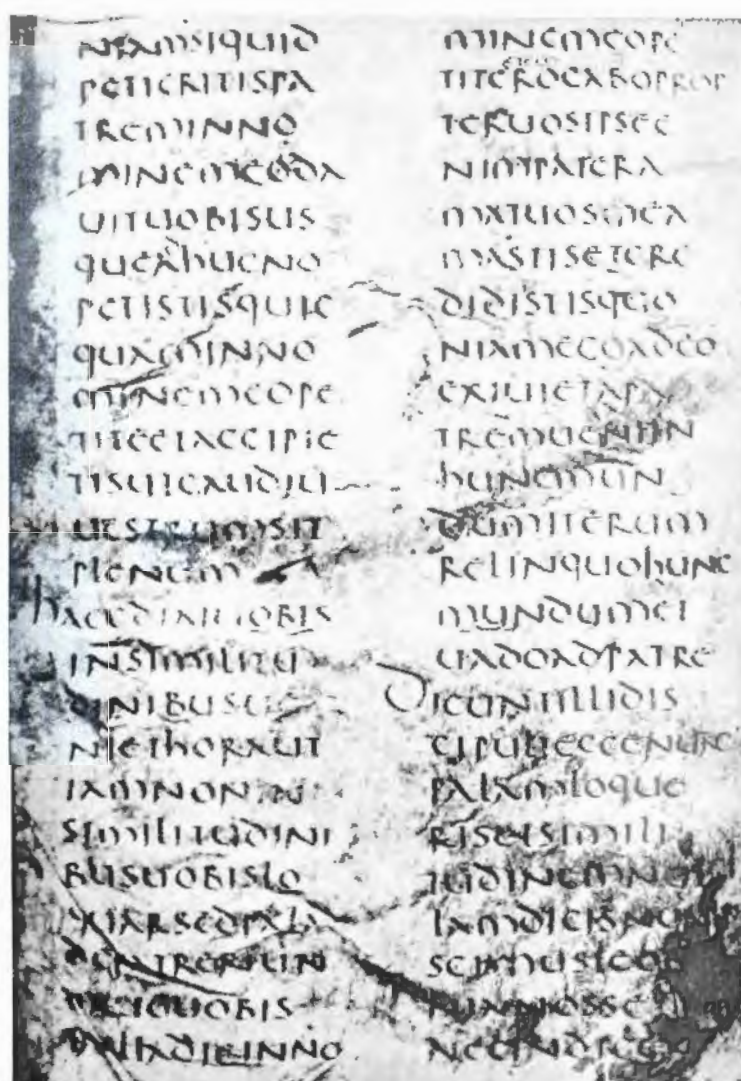 NIAMSIQUID
PETIERITISPA
TREMINNO
MINEMEODA
UITUOBISUS
QUEADHUCNO
PETISTISQUIC
QUAMINNO
MINEMEOPE
TITEETACCIPIE
TISUTGAUDIU
UESTRUMSIT
PLENUM
HAECDIXIUOBIS
INSIMILITU
DINIBUSUE
NIETHORAUT
IAMNONIN
SIMILITUDINI
BUSUOBISLO
QUARSEDPALA
UOBIS
INILLADIEINNO
MINEMEOPE
TITEEGOROGABOPROP
TERUOSIPSEE
NIMPATERA
MATUOSMEA
MASTISETCRE
DIDISTISQEGO
NIAMEOADEO
EXIUIETAPA
TREMUENIIN
HUNCMUN
DUMITERUM
RELINQUOHUNC
MUNDUMET
UADOADPATRE
DICUNTILLIDIS
CIPULIECCENUNC
PALAMLOQUE
RISETSIMILI
TUDINEMNUL
LAMDICISNUNC
SCIMUSTEOM